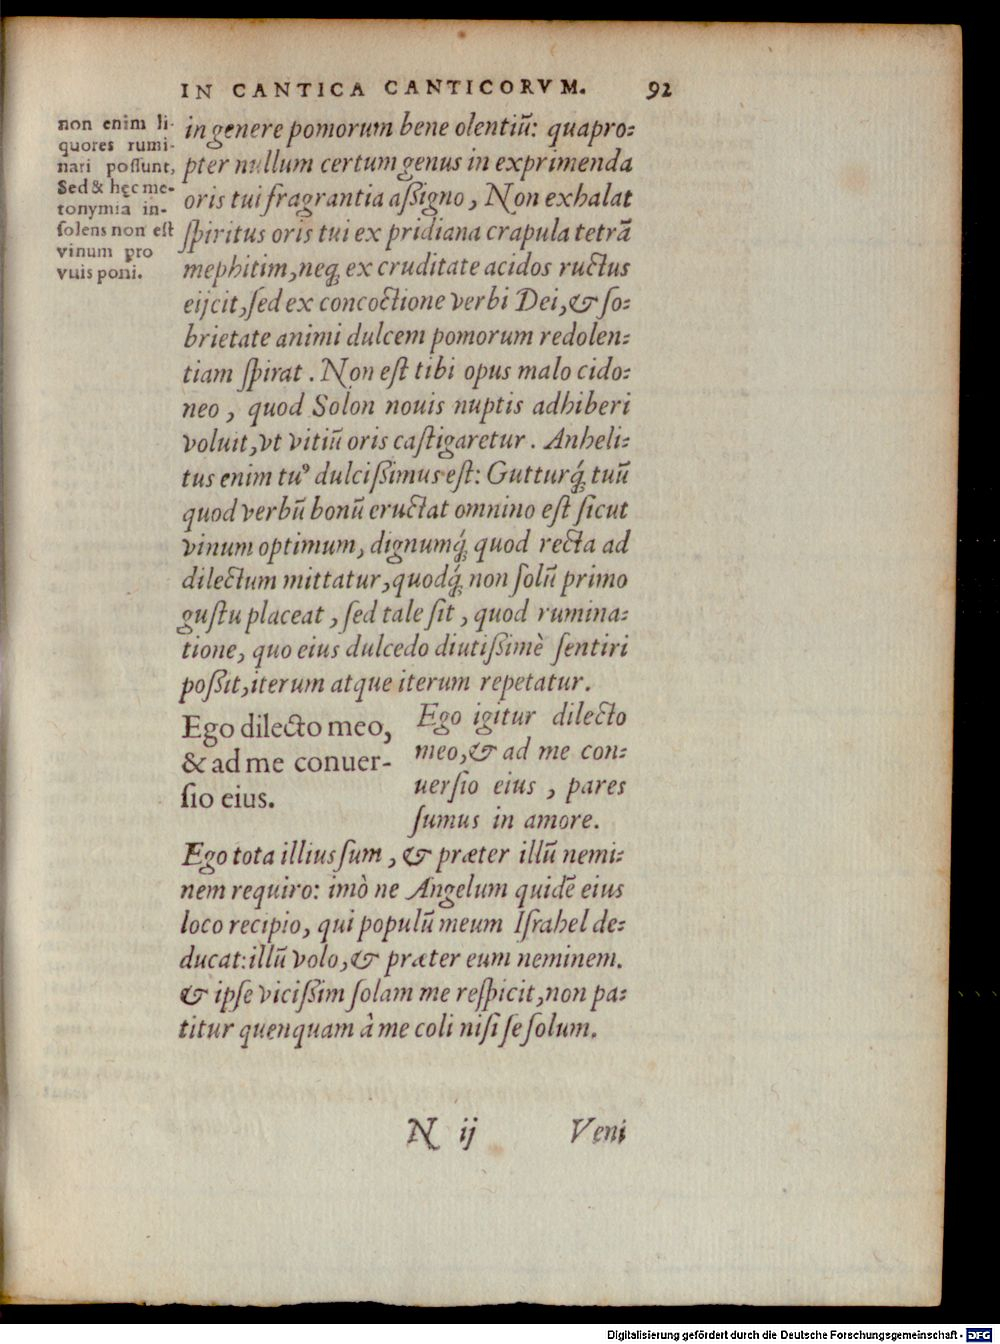 IN CANTICA CANTICORVM. 92
non enim li-
quores rumi-
nari poſſunt,
Sed & hęc me-
tonymia in-
ſolens non eſt
vinum pro
vuis poni.
in genere pomorum bene olentiū: quapro-
pter nullum certum genus in exprimenda
oris tui fragrantia aſſigno, Non exhalat
ſpiritus oris tui ex pridiana crapula tetrā
mephitim, neq; ex cruditate acidos ructus
eijcit, ſed ex concoctione verbi Dei, & ſo-
brietate animi dulcem pomorum redolen-
tiam ſpirat. Non eſt tibi opus malo cido-
neo, quod Solon nouis nuptis adhiberi
voluit, vt vitiū oris caſtigaretur. Anheli-
tus enim tuꝰ dulciſſimus eſt: Gutturq́; tuū
quod verbū bonū eructat omnino eſt ſicut
vinum optimum, dignumq́; quod recta ad
dilectum mittatur, quodq́; non ſolū primo
guſtu placeat, ſed tale ſit, quod rumina-
tione, quo eius dulcedo diutiſſimè ſentiri
poſſit, iterum atque iterum repetatur.
Ego dilecto meo,
& ad me conuer-
ſio eius.
Ego igitur dilecto
meo, & ad me con-
uerſio eius, pares
ſumus in amore.
Ego tota illius ſum, & præter illū nemi-
nem requiro: imò ne Angelum quidē eius
loco recipio, qui populū meum Iſrahel de-
ducat: illū volo, & præter eum neminem.
& ipſe viciſſim ſolam me reſpicit, non pa-
titur quenquam à me coli niſi ſe ſolum.
N ij Veni
Digitalisierung gefördert durch die Deutsche Forschungsgemeinschaft - DFG